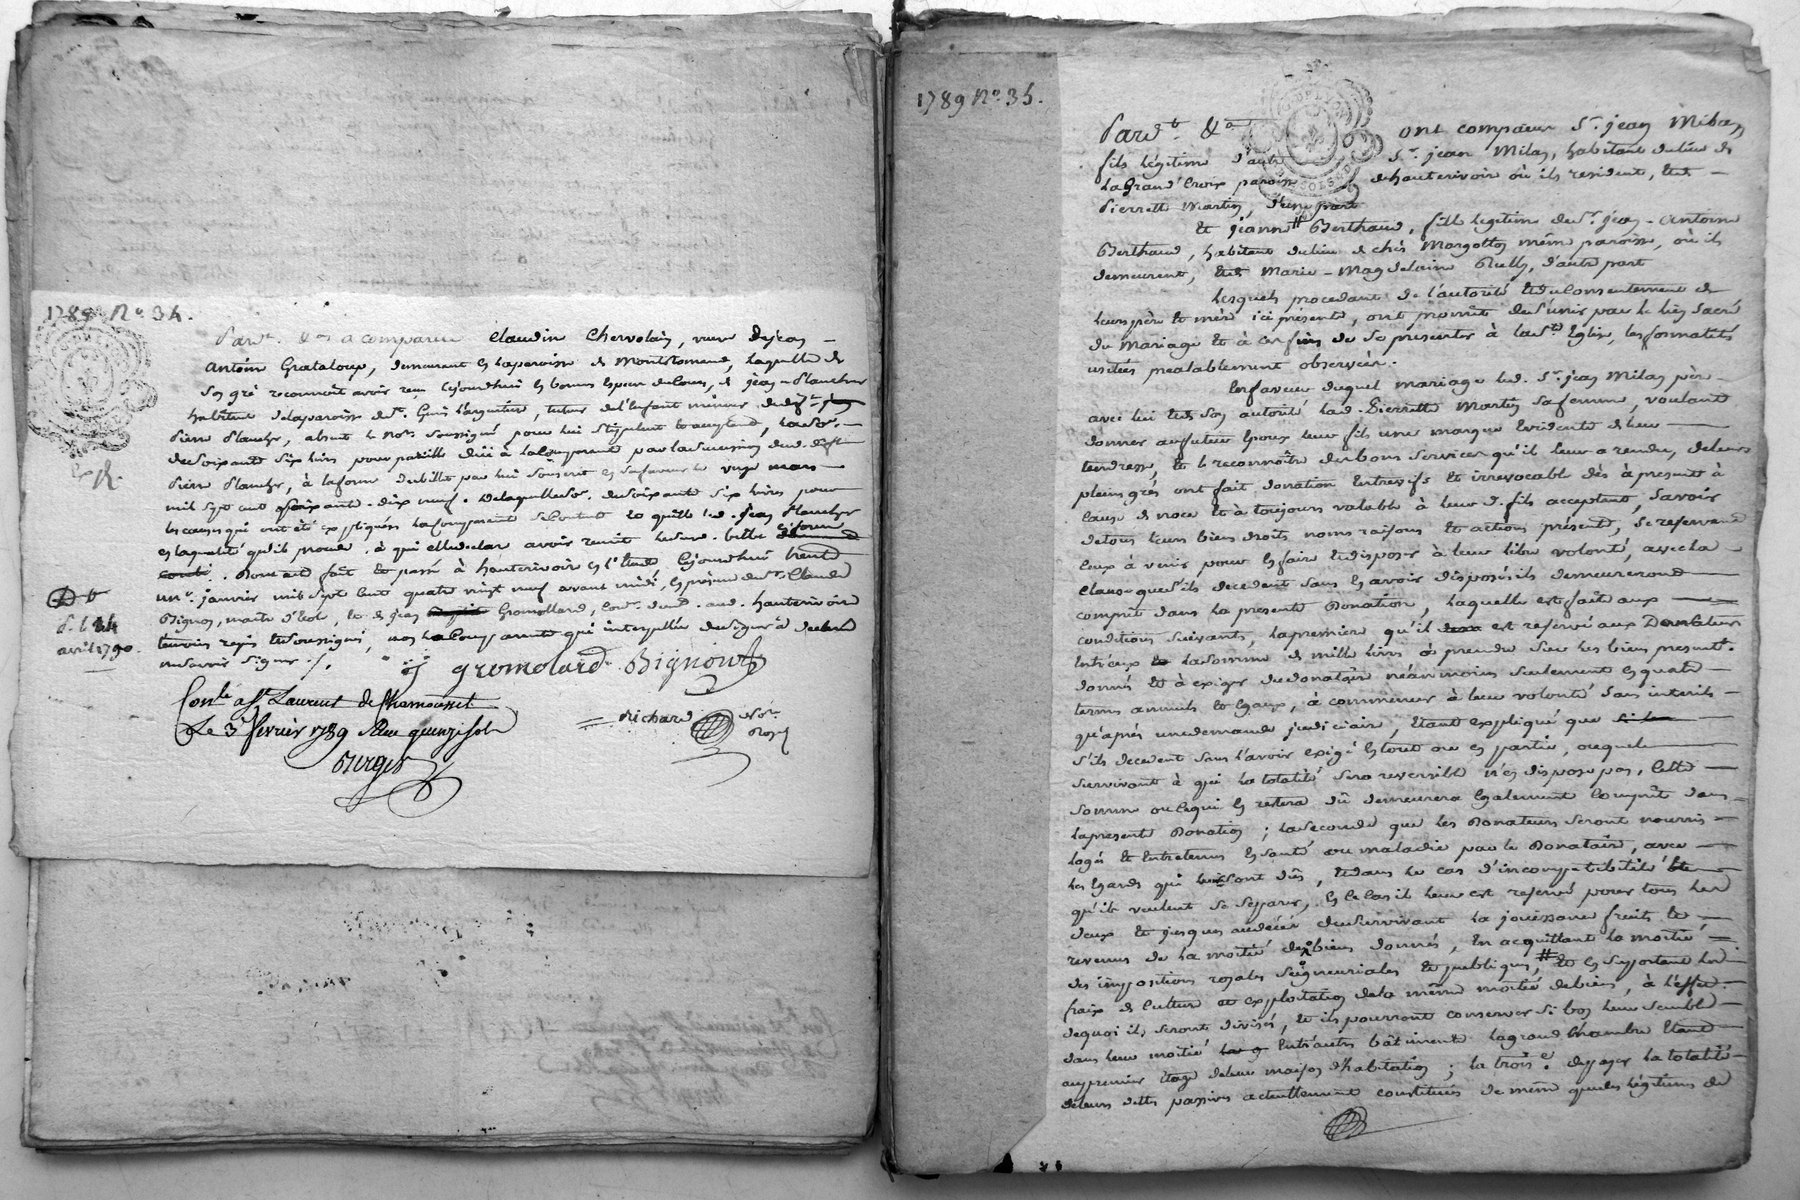 1789 No. 34.
Pard.t &a a comparu Claudine Chervolin, veuve de jean
Antoine Grataloup, demeurant en la paroisse de Montromand, laquelle de
son gré reconnoit avoir reçu cejourdhui en bonnes especes de cours, de jean Plancher
habitant de la paroisse de St. Genis l'argentiere, tuteur de l'enfant mineur
Pierre Plancher, absent le not.e soussigné pour lui stipulant &acceptant, la so.
de soixante six livres pour pareille due à la comparante par la succession dud. deft
Pierre Plancher, à la forme du billet par lui souscrit en sa faveur le vingt mars
mil sept cent soixante-dix neuf. De laquelle so. de soixante six livres pour
les causes qui ont été expliquées la comparante se contente & quitte led. jean Plancher
en la qualité qu'il procede, à qui elle declare avoir remit led. billet
Dont acte fait & passé à hauterivoire en l'etude, cejourdhui trente
un janvier mil sept cent quatre vingt neuf avant midi, en présence de Sr. Claude
Bignon, maitre d'ecole, & de jean Gromollard, cord. dud. hauterivoire
témoins requis & soussignés, non la comparante qui interpellée de signer a declaré
ne savoir signer ./.
j gromolard Bignon
Con.lé a St. Laurent de Chamousset
Le 3 fevrier 1789 Reçu quinze sols
Burget
Richard Not.
Roy.l
Exp.
D b
d. l 24
avril 1790.
1789 No. 35.
Pard.t &a ont comparu Sr. jean Milan
fils légitime d'autre Sr. jean Milan, habitant du lieu de
la Grand'Croix paroisse de hauterivoire où ils resident, & de
Pierrette Martin, d'une part
Et jeanne # Berthaud, fille legitime de Sr. jean-Antoine
Berthaud, habitant du lieu de chés Margotton même paroisse, où ils
demeurent, & de Marie-Magdelaine Rully, d'autre part
Lesquels procedant de l'autorité & du consentement de
leurs père & mère ici présents, ont promit de s'unir par le lien sacré
du Mariage & à ces fins de se presenter à la Ste. Eglise, les formalités
usitées prealablement observées.
En faveur duquel mariage led. Sr. jean Milan père
avec lui & de son autorité lad. Pierrette Martin sa femme, voulant
donner au futur Epoux leur fils une marque Evidente de leur
tendresse, & le reconnoître des bons services qu'il leur a rendu, de leurs
pleins grés ont fait donation Entrevifs & irrevocable dès à present à
cause de noce & à toujours valable à leur d. fils acceptant, savoir
de tous leurs biens droits noms raisons & actions présents, se reservant
ceux à venir pour en faire & disposer à leur libre volonté, avec la
clause que s'ils decedent sans en avoir disposés ils demeureront
comprit dans la presente Donation, laquelle est faite aux
conditions suivantes, la premiere qu'il est reservé aux Donateurs
Entr'eux la somme de mille livres à prendre sur les biens presents
donnés & à exiger du donataire néanmoins seulement en quatre
termes annuels & égaux, à commencer à leur volonté sans interêts
qu'après une demande judiciaire, étant expliqué que
s'ils decedent sans l'avoir exigé En tout ou en partie, ou que le
survivant à qui la totalité sera reversible n'en dispose pas, cette
somme ou ce qui En restera dû demeurera également comprit dans
la presente Donation ; la seconde que les Donateurs seront nourris
logés & Entretenus En santé ou maladie par le Donataire, avec
les Egards qui leur sont dûs, & dans le cas d'incompatibilité
qu'ils veulent se separer, En ce cas il leur est reservé pour tous les
deux & jusques au décès du survivant la jouissance fruits &
revenus de la moitié des biens donnés, En acquittant la moitié
des impositions royales seigneuriales & publiques, # & En supportant les
frais de culture & exploitation de la même moitié de biens, à l'effet
de quoi ils seront divisés, & ils pourront conserver si bon leur semble
dans leur moitié Entr'autres bâtiments la grand chambre étant
au premier étage de leur maison d'habitation ; la trois.e de payer la totalité
de leurs dettes passives actuellement constitués de même que les légitimes de